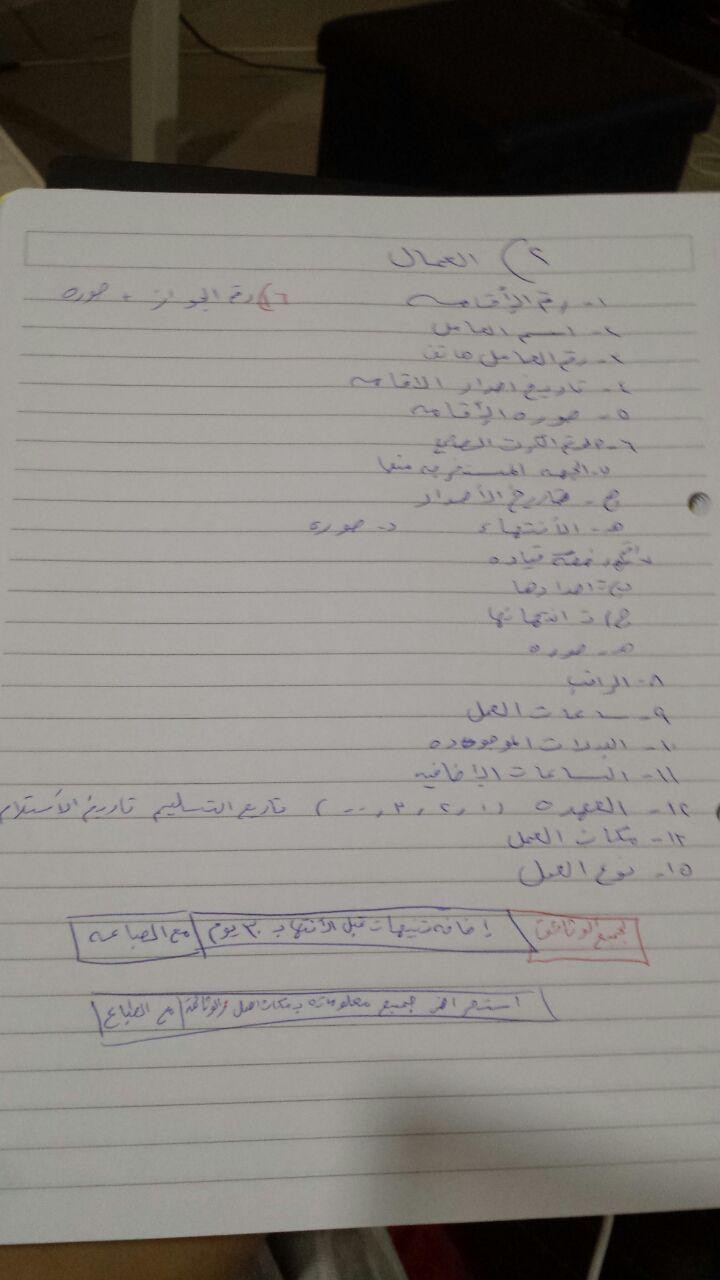 ٢) العمال
١- رقم الأقامه ٦) رقم الجواز + صوره
٢- اسم العامل
٣- رقم العامل هاتف
٤- تاريخ اصدار الاقامه
٥- صوره الإقامه
٦- رقم الكرت الصحي
ب. الجهه المستخرجه منها
ج- تاريخ الأصدار
هـ- الأنتهاء د- صوره
رخصة قياده
ب) ت اصدارها
ج) ت انتهائها
هـ- صوره
٨- الراتب
٩- ساعات العمل
١٠- البدلات الموجوده
١١- الساعات الإضافيه
١٢- العهده (١، ٢، ٣، ...) تاريخ التسليم تاريخ الأستلام
١٣- مكان العمل
١٥- نوع العمل
لجميع الوثائق إضافه تنبيهات قبل الأنتهاء بـ ٣٠ يوم مع الطباعه
استعراض جميع معلوماته بمكان العمل والوثائق مع الطباعه